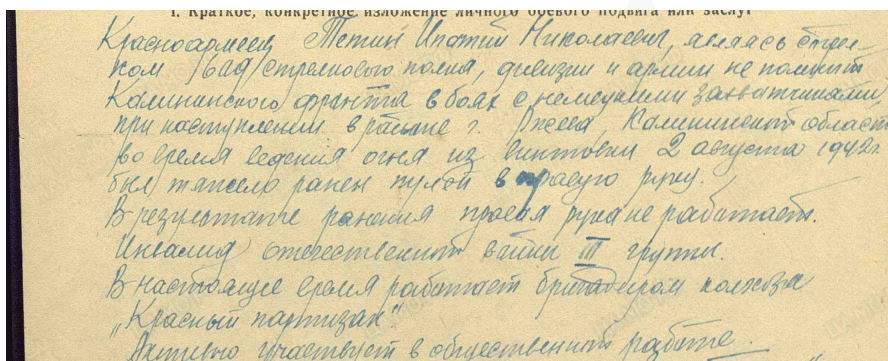 I. Краткое, конкретное изложение личного боевого подвига или заслуг
Красноармеец Тетин Ипатий Николаевич, являясь стрел-
ком 1648 стрелкового полка, дивизии и армии не помнит
Калининского фронта в боях с немецкими захватчиками,
при наступлении в районе г. Ржева, Калининской област
во время ведения огня из винтовки 2 августа 1942г.
был тяжело ранен пулей в правую руку.
В результате ранения правая рука не работает.
Инвалид отечественной войны III группы.
В настоящее время работает бригадиром колхоза
„Красный партизан"
Активно участвует в общественной работе.